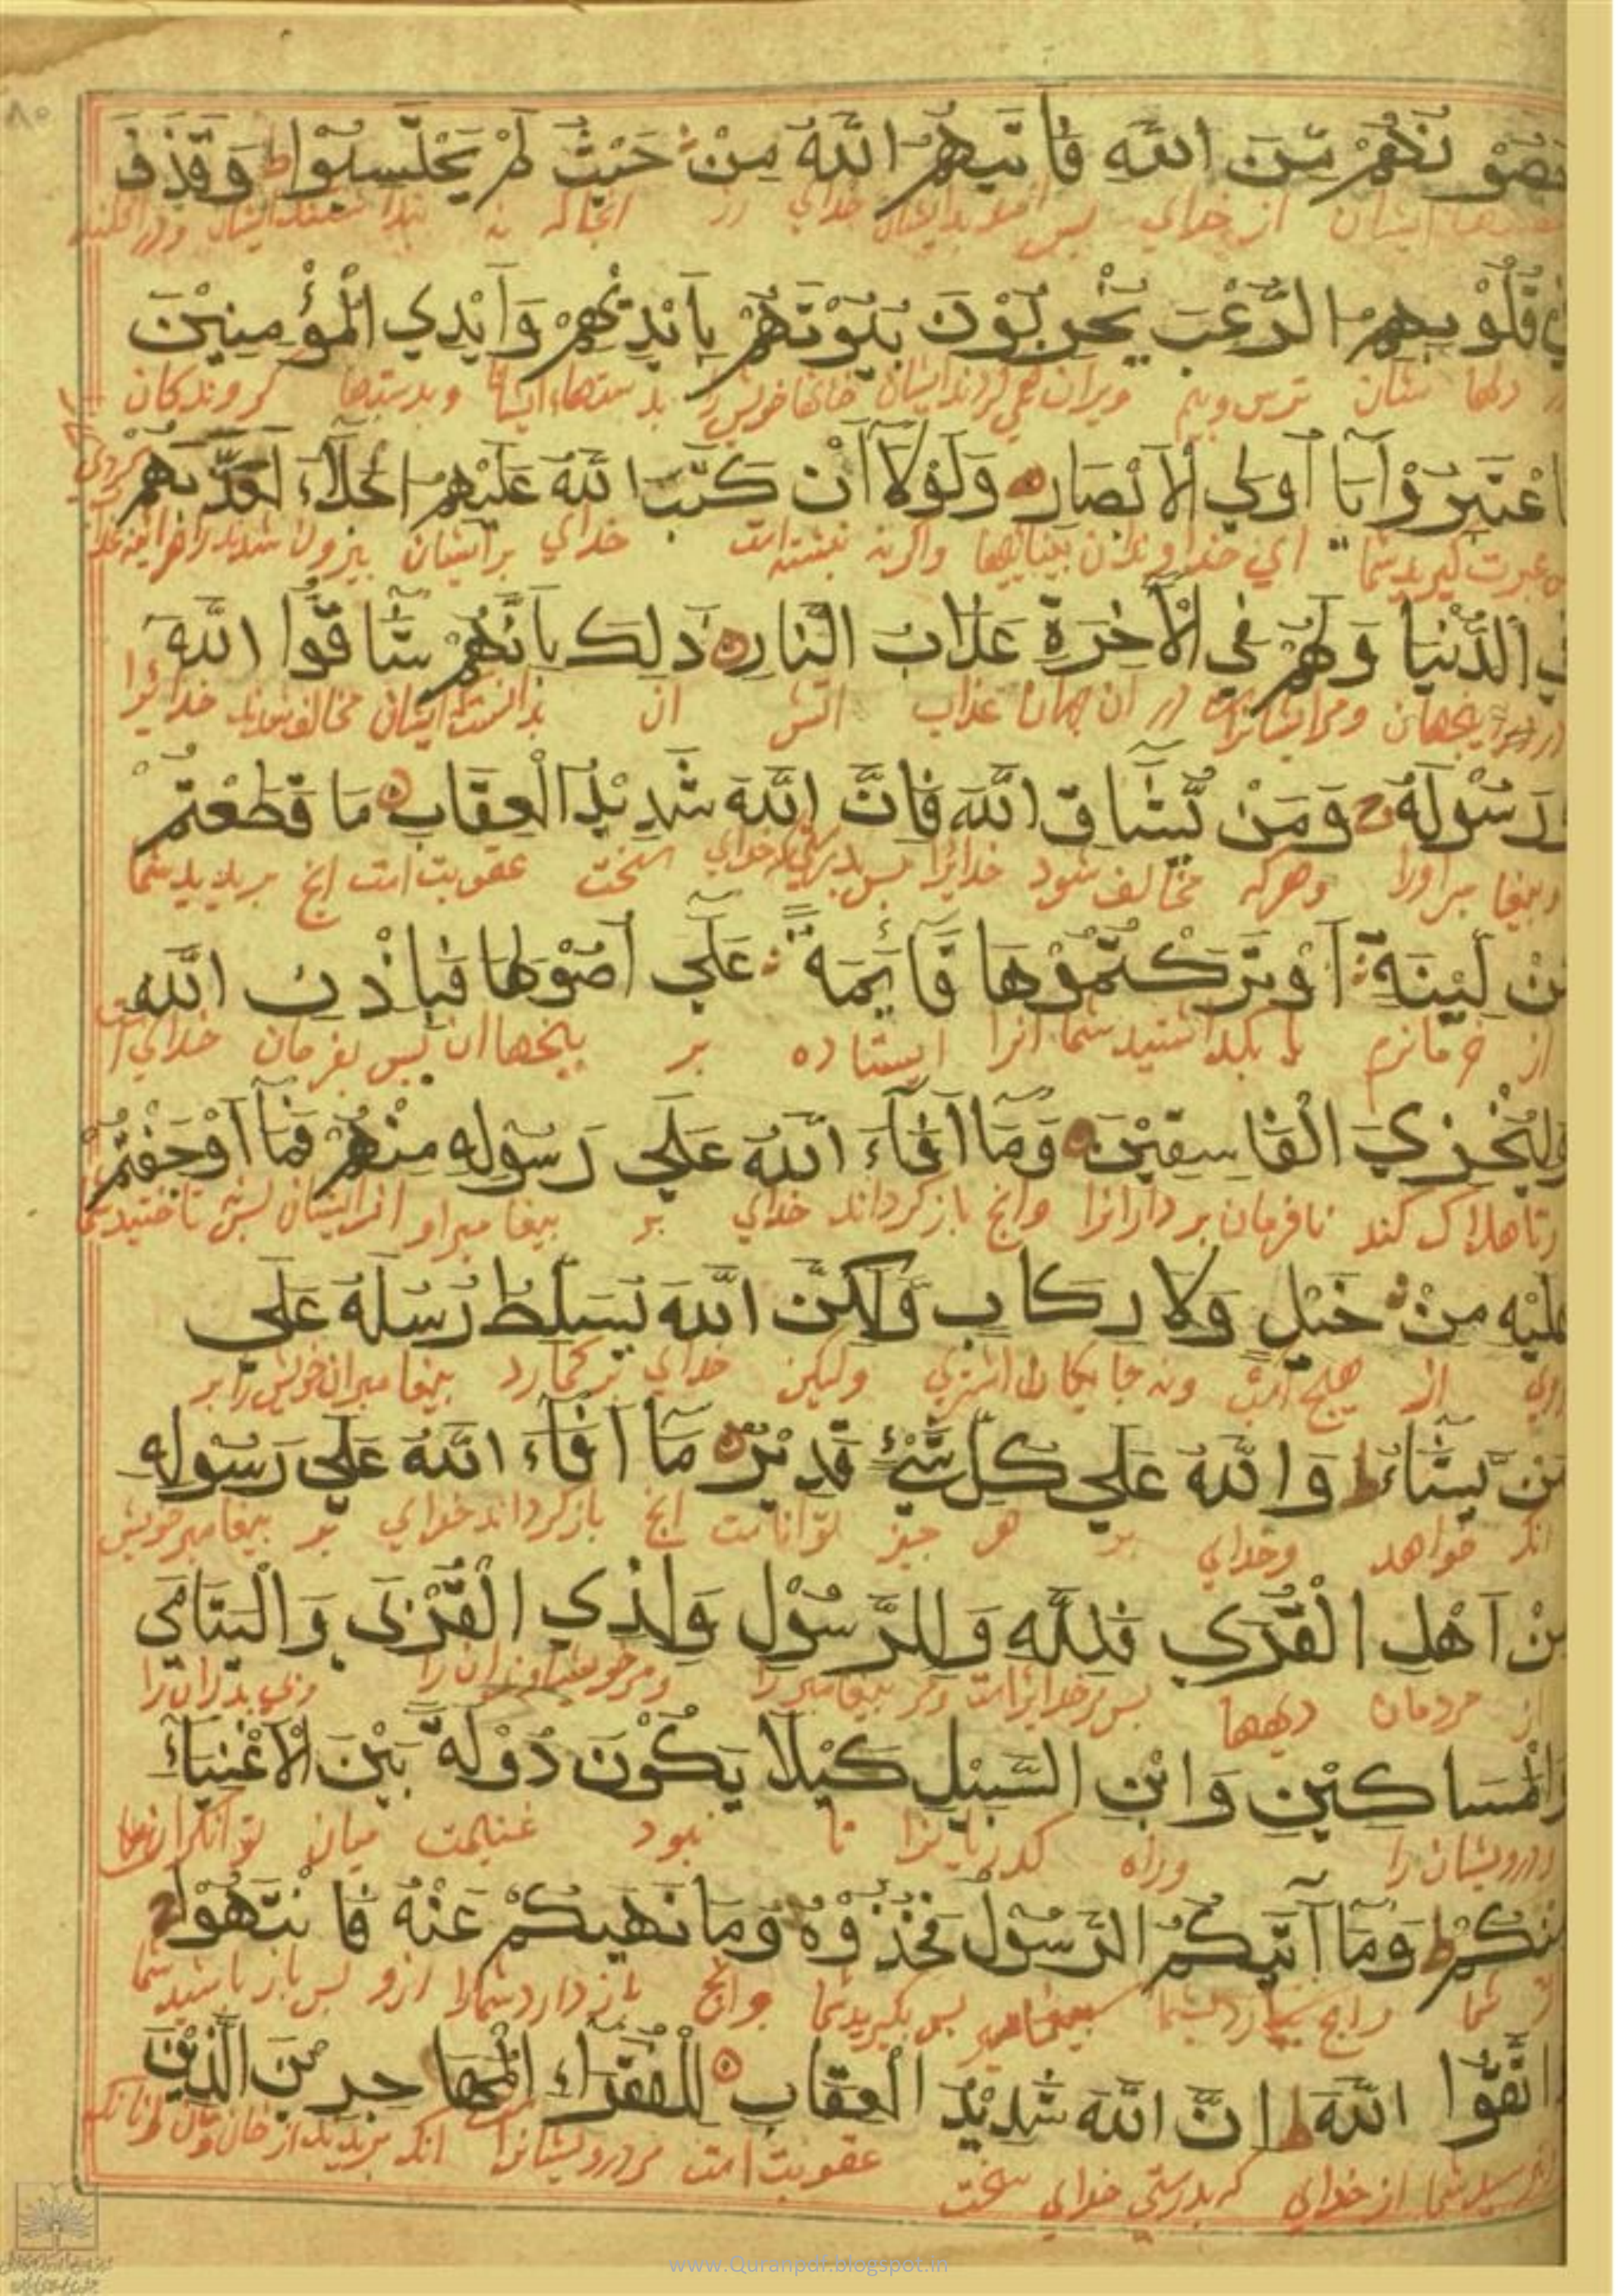 حصونهم من الله فاتيهم الله من حيث لم يحتسبوا ط وقذف
ايشان از خداي پس خداي از انجا كه نه
في قلوبهم الرعب يخربون بيوتهم بايديهم وايدي المؤمنين
دلها شان ترس وبيم ويران خانها خويش را بدستها ايشان وبدستها كروندكان
فاعتبروا يا اولي الابصار ولولا ان كتب الله عليهم الجلاء لعذبهم
عبرت كيريد شما اي خداوندان بيناييها واكر نه نبشته است خداي بر ايشان بيرون شدن
في الدنيا ولهم في الآخرة عذاب النار ذلك بانهم شاقوا الله
ومر ايشانراست در ان جهان عذاب اتش ان ايشان مخالف شدند خدايرا
ورسوله ج ومن يشاق الله فان الله شديد العقاب ما قطعتم
وپيغامبر اورا وهركه مخالف شود خدايرا پس بدرستيكه خداي سخت عقوبت است انچ بريديد شما
من لينة او تركتموها قائمة على اصولها فباذن الله
از خرمابن يا بگذاشتيد شما انرا ايستاده بر بيخها ان پس بفرمان خداي
وليخزي الفاسقين وما افاء الله على رسوله منهم فما اوجفتم
وتا هلاك كند نافرمان بردارانرا وانچ باز كرداند خداي بر پيغامبر او از ايشان پس نتاختيد شما
عليه من خيل ولا ركاب ولكن الله يسلط رسله على
از هيچ اسب ونه وليكن خداي بركمارد پيغامبران خويش را بر
من يشاء ط والله على كل شئ قدير ما افاء الله على رسوله
انك خواهد وخداي بر هر چيز تواناست انچ باز كرداند خداي بر پيغامبر خويش
من اهل القرى فلله وللرسول ولذي القربى واليتامى
از مردمان ديهها پس مر خدايراست ومر پيغامبر را ومر خويشاوندان را وبي پدران را
والمساكين وابن السبيل كيلا يكون دولة بين الاغنياء
ودرويشان را وراه كدريانرا تا نبود غنيمت ميان توانكران
منكم ط وما آتيكم الرسول فخذوه وما نهيكم عنه فانتهوا ج
شما وانچ پيغامبر پس بكيريد شما وانچ باز دارد شمارا ازو پس باز باشيد شما
واتقوا الله ط ان الله شديد العقاب للفقراء المهاجرين الذين
وبترسيد شما از خداي كه بدرستي خداي سخت عقوبت است مر درويشانرا انك بريدند از خان ومان
www.Quranpdf.blogspot.in